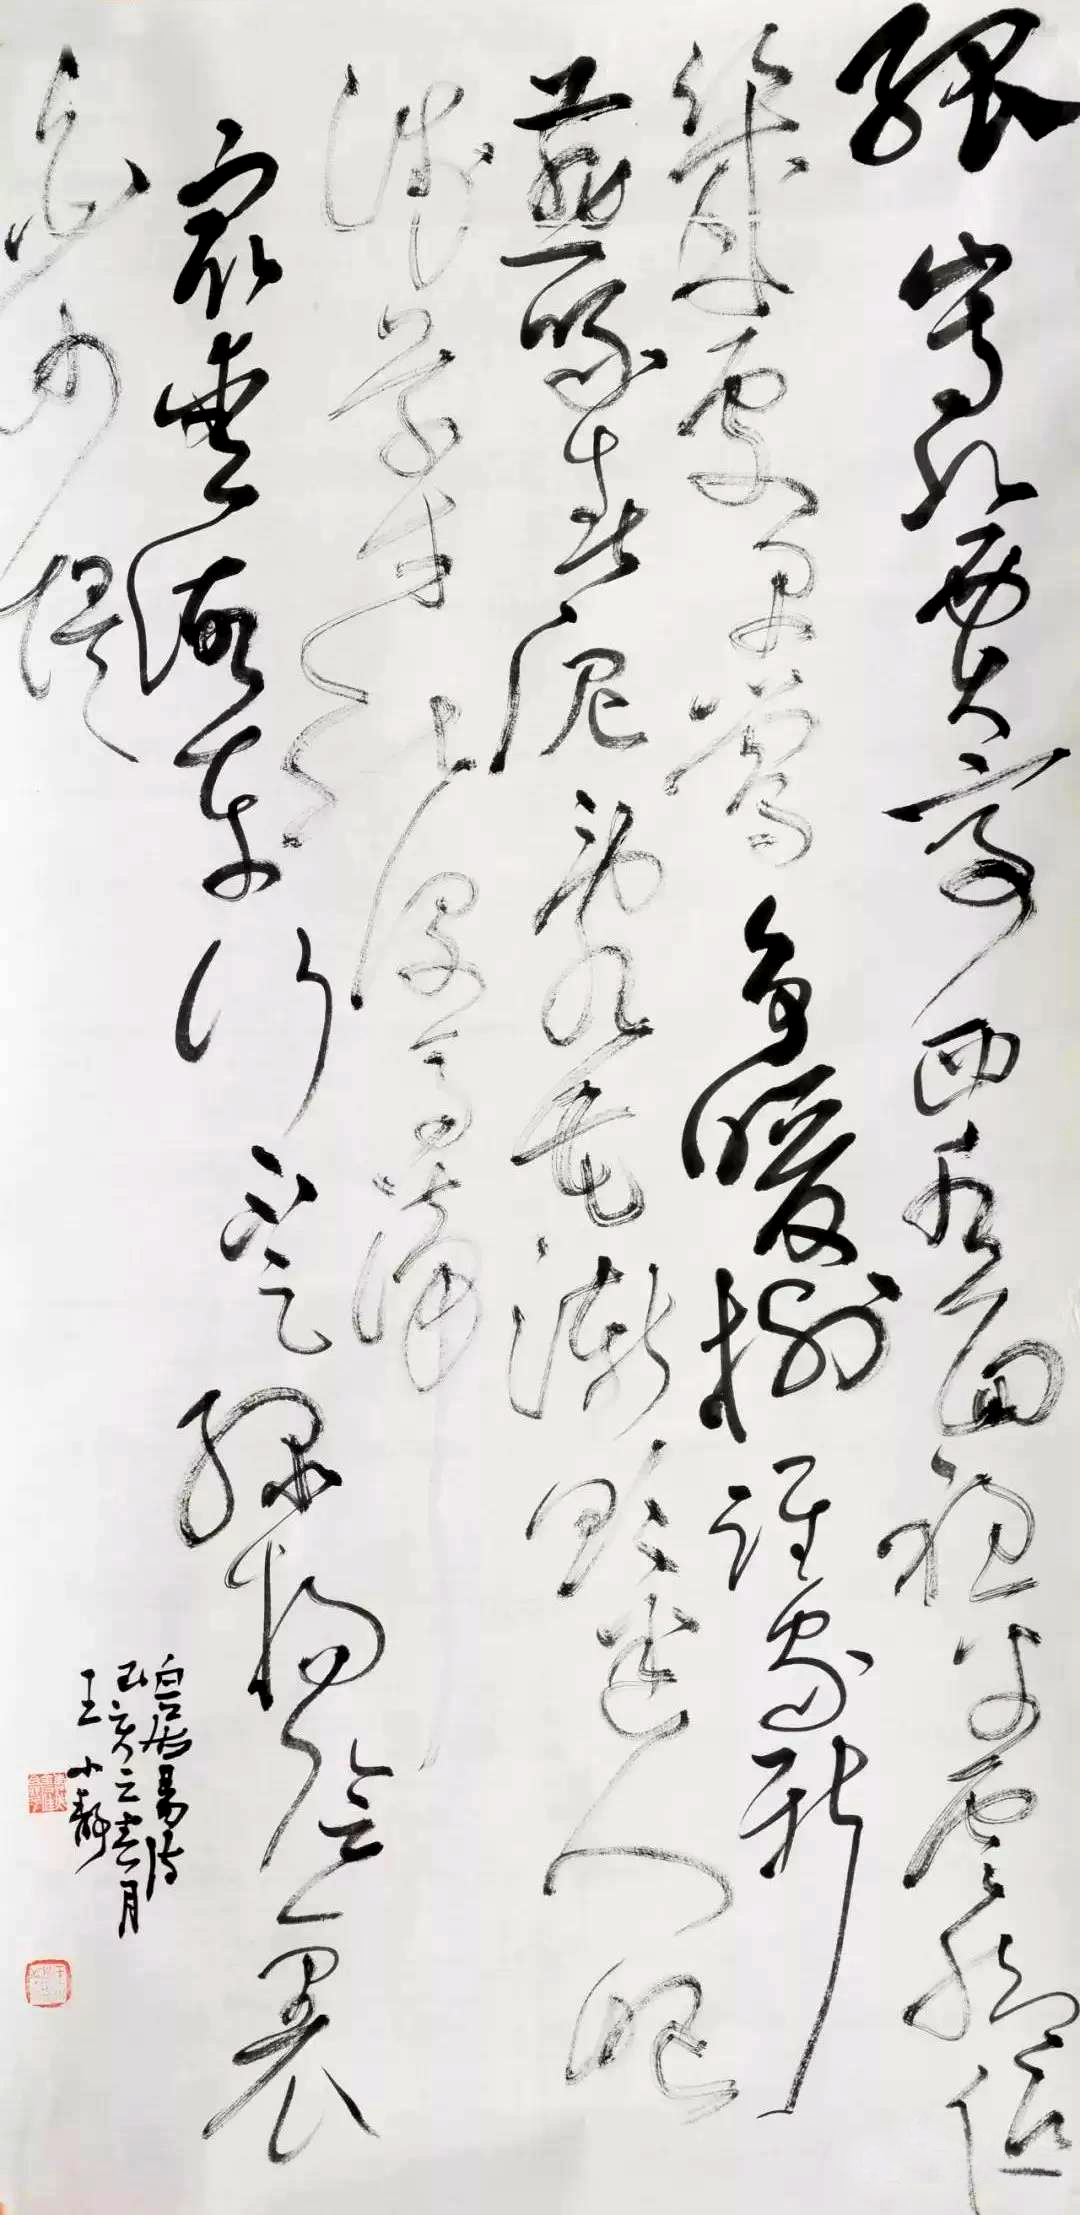 孤山寺北贾亭西水面初平云脚低
几处早莺争暖树谁家新
燕啄春泥乱花渐欲迷人眼
浅草才能没马蹄
最爱湖东行不足绿杨阴里
白沙堤
白居易诗
己亥之春月
王小静